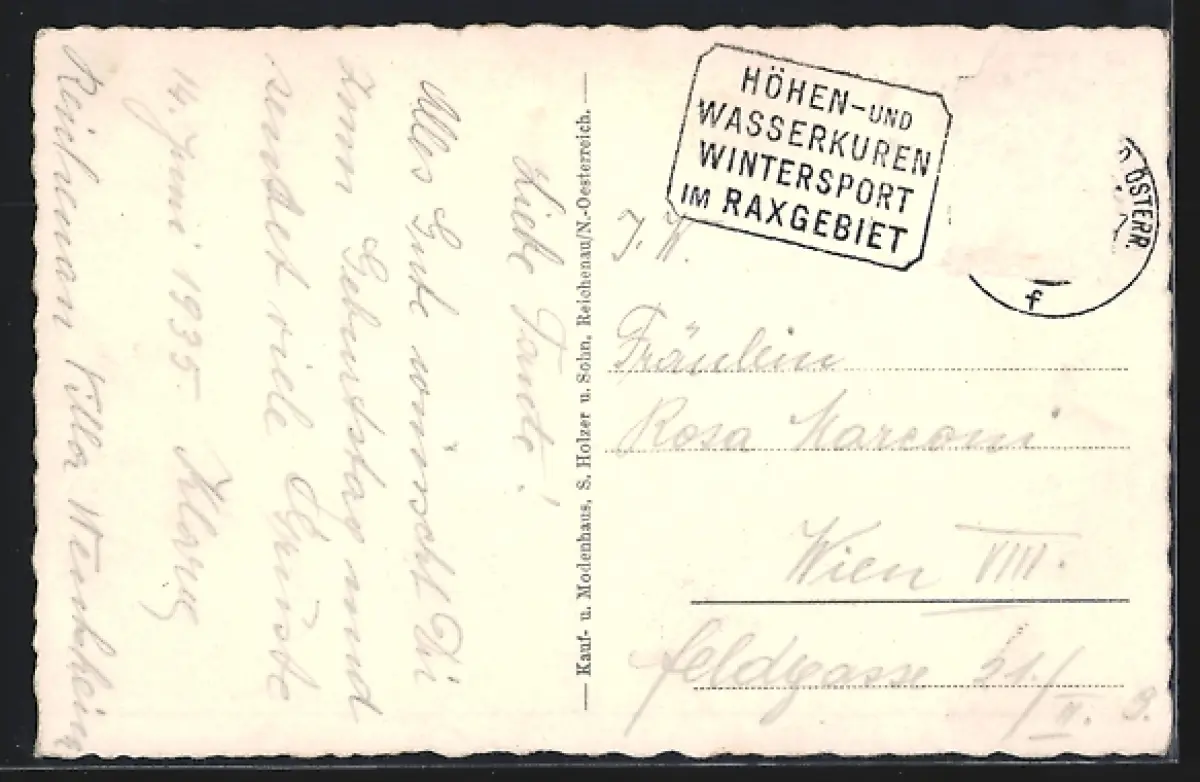 Liebe Tante!
Alles Gute wünscht Di
zum Geburtstag und
sendet viele Grüsse
14. Juni 1935
Reichenau Villa Wenkheim
Kauf- u. Modenhaus, S. Holzer u. Sohn, Reichenau/N.-Oesterreich.
HÖHEN-UND
WASSERKUREN
WINTERSPORT
IM RAXGEBIET
ÖSTERR.
f
Fräulein
Rosa Marconi
Wien VIII.
Feldgasse 21/
II. 9.